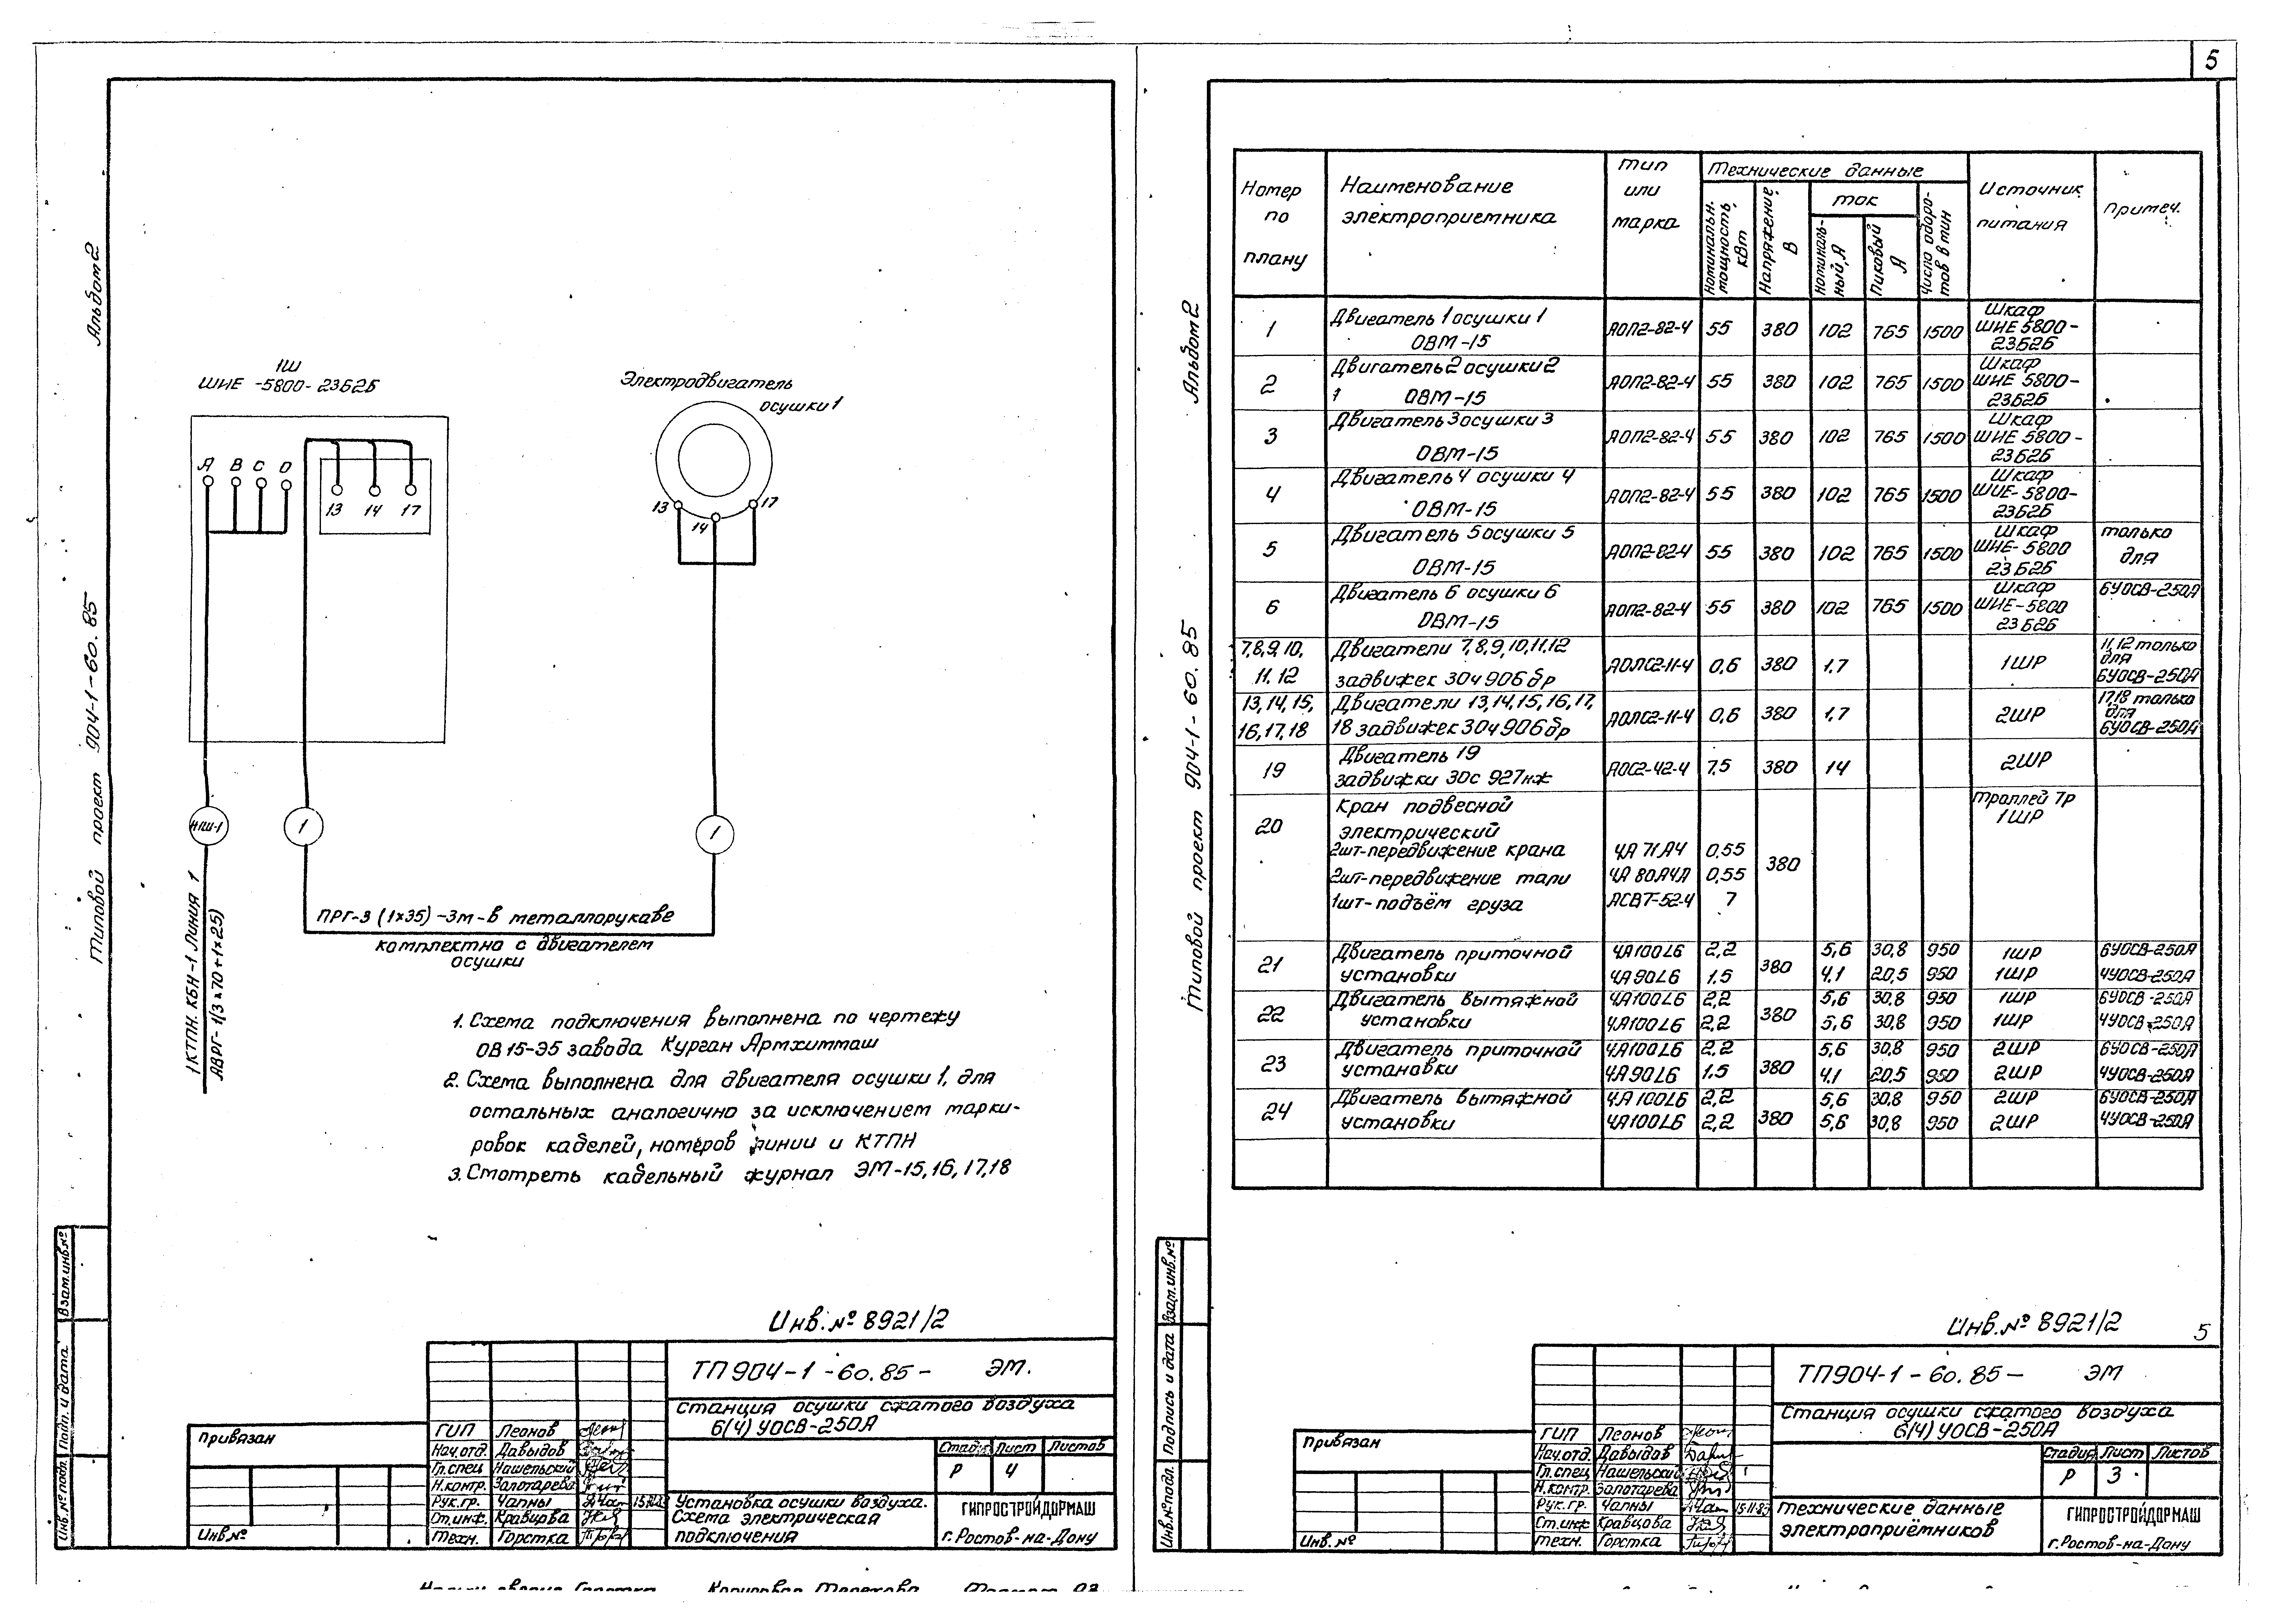 5
Альбом 2
Типовой проект 904-1-60.85
1Ш
ШИЕ -5800- 23Б2Б
Электродвигатель
осушки 1
А В С О
13 14 17
13 14 17
НПШ-1
1
1
1КТПН. КБН-1 Линия 1
АВРГ- 1(3х70+1х25)
ПРГ-3 (1х35) -3м-в металлорукаве
комплектно с двигателем
осушки
1. Схема подключения выполнена по чертежу
ОВ 15-Э5 завода Курган Армхиммаш
2. Схема выполнена для двигателя осушки 1, для
остальных аналогично за исключением марки-
ровок кабелей, номеров линии и КТПН
3. Смотреть кабельный журнал ЭМ-15,16,17,18
Инв.№ 8921/2
ТП904-1-60.85- ЭМ.
Станция осушки сжатого воздуха
6(4) УОСВ-250А
Стадия Лист Листов
Р 4
Установка осушки воздуха.
Схема электрическая
подключения
ГИПРОСТРОЙДОРМАШ
г.Ростов-на-Дону
ГИП Леонов
Нач.отд. Давыдов
Гл.спец Нашельский
Н.контр. Золотарева
Рук.гр. Чапны
Ст.инж. Кравцова
Техн. Горстка
Привязан
Инв№
Взам.инв.№
Подп. и дата
Инв.№подл.
Альбом 2
Типовой проект 904-1-60.85
Номер по плану
Наименование электроприемника
Тип или марка
Технические данные
Номинальн. мощность, кВт
Напряжение, В
Ток
Номиналь-ный, А
Пиковый А
Число оборо-тов в мин
Источник питания
Примеч.
1 Двигатель 1 осушки 1 ОВМ-15 АОП2-82-4 55 380 102 765 1500 Шкаф ШИЕ 5800-23Б2Б
2 Двигатель 2 осушки 2 ОВМ-15 АОП2-82-4 55 380 102 765 1500 Шкаф ШИЕ 5800-23Б2Б
3 Двигатель 3 осушки 3 ОВМ-15 АОП2-82-4 55 380 102 765 1500 Шкаф ШИЕ 5800-23Б2Б
4 Двигатель 4 осушки 4 ОВМ-15 АОП2-82-4 55 380 102 765 1500 Шкаф ШИЕ-5800-23Б2Б
5 Двигатель 5 осушки 5 ОВМ-15 АОП2-82-4 55 380 102 765 1500 Шкаф ШИЕ-5800 23Б2Б только для
6 Двигатель 6 осушки 6 ОВМ-15 АОП2-82-4 55 380 102 765 1500 Шкаф ШИЕ-5800 23Б2Б 6УОСВ-250А
7,8,9,10, 11.12 Двигатели 7,8,9,10,11,12 задвижек 30ч906бр АОЛС2-11-4 0,6 380 1.7 1ШР 11,12 только для 6УОСВ-250А
13,14,15, 16,17,18 Двигатели 13,14,15,16,17, 18 задвижек 30ч906бр АОЛС2-11-4 0,6 380 1,7 2ШР 17,18 только для 6УОСВ-250А
19 Двигатель 19 задвижки 30с 927нж АОС2-42-4 7,5 380 14 2ШР
20 Кран подвесной электрический 380 Троллей 7р 1ШР
2шт-передвижение крана 4А 71А4 0,55
2шт-передвижение тали 4А 80А4А 0,55
1шт-подъём груза АСВТ-52-4 7
21 Двигатель приточной установки 380
4А100L6 2,2 5,6 30,8 950 1ШР 6УОСВ-250А
4А90L6 1.5 4.1 20,5 950 1ШР 4УОСВ-250А
22 Двигатель вытяжной установки 380
4А100L6 2,2 5,6 30,8 950 1ШР 6УОСВ-250А
4А100L6 2,2 5,6 30,8 950 1ШР 4УОСВ-250А
23 Двигатель приточной установки 380
4А100L6 2,2 5,6 30,8 950 2ШР 6УОСВ-250А
4А90L6 1.5 4.1 20,5 950 2ШР 4УОСВ-250А
24 Двигатель вытяжной установки 380
4А100L6 2,2 5,6 30,8 950 2ШР 6УОСВ-250А
4А100L6 2,2 5,6 30,8 950 2ШР 4УОСВ-250А
Инв.№ 8921/2
5
ТП904-1-60.85- ЭМ
Станция осушки сжатого воздуха
6(4) УОСВ-250А
Стадия Лист Листов
Р 3
Технические данные
электроприёмников
ГИПРОСТРОЙДОРМАШ
г.Ростов-на-Дону
ГИП Леонов
Нач.отд. Давыдов
Гл.спец Нашельский
Н.контр. Золотарева
Рук.гр. Чапны
Ст.инж Кравцова
Техн. Горстка
Привязан
Инв.№
Взам.инв.№
Подпись и дата
Инв.№подл.